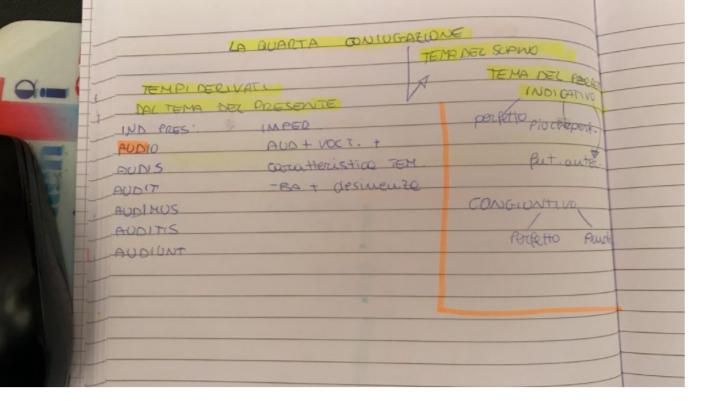 LA QUARTA CONIUGAZIONE
TEMA DEL SUPINO
TEMPI DERIVATI
DAL TEMA DEL PRESENTE
IND PRES: IMPER
AUDIO AUD + VOCT. +
AUDIS caratteristica TEM
AUDIT -BA + desinenze
AUDIMUS
AUDITIS
AUDIUNT
TEMA DEL
INDICATIVO
perfetto piucheperf.
fut. ante.
CONGIUNTIVO
Perfetto